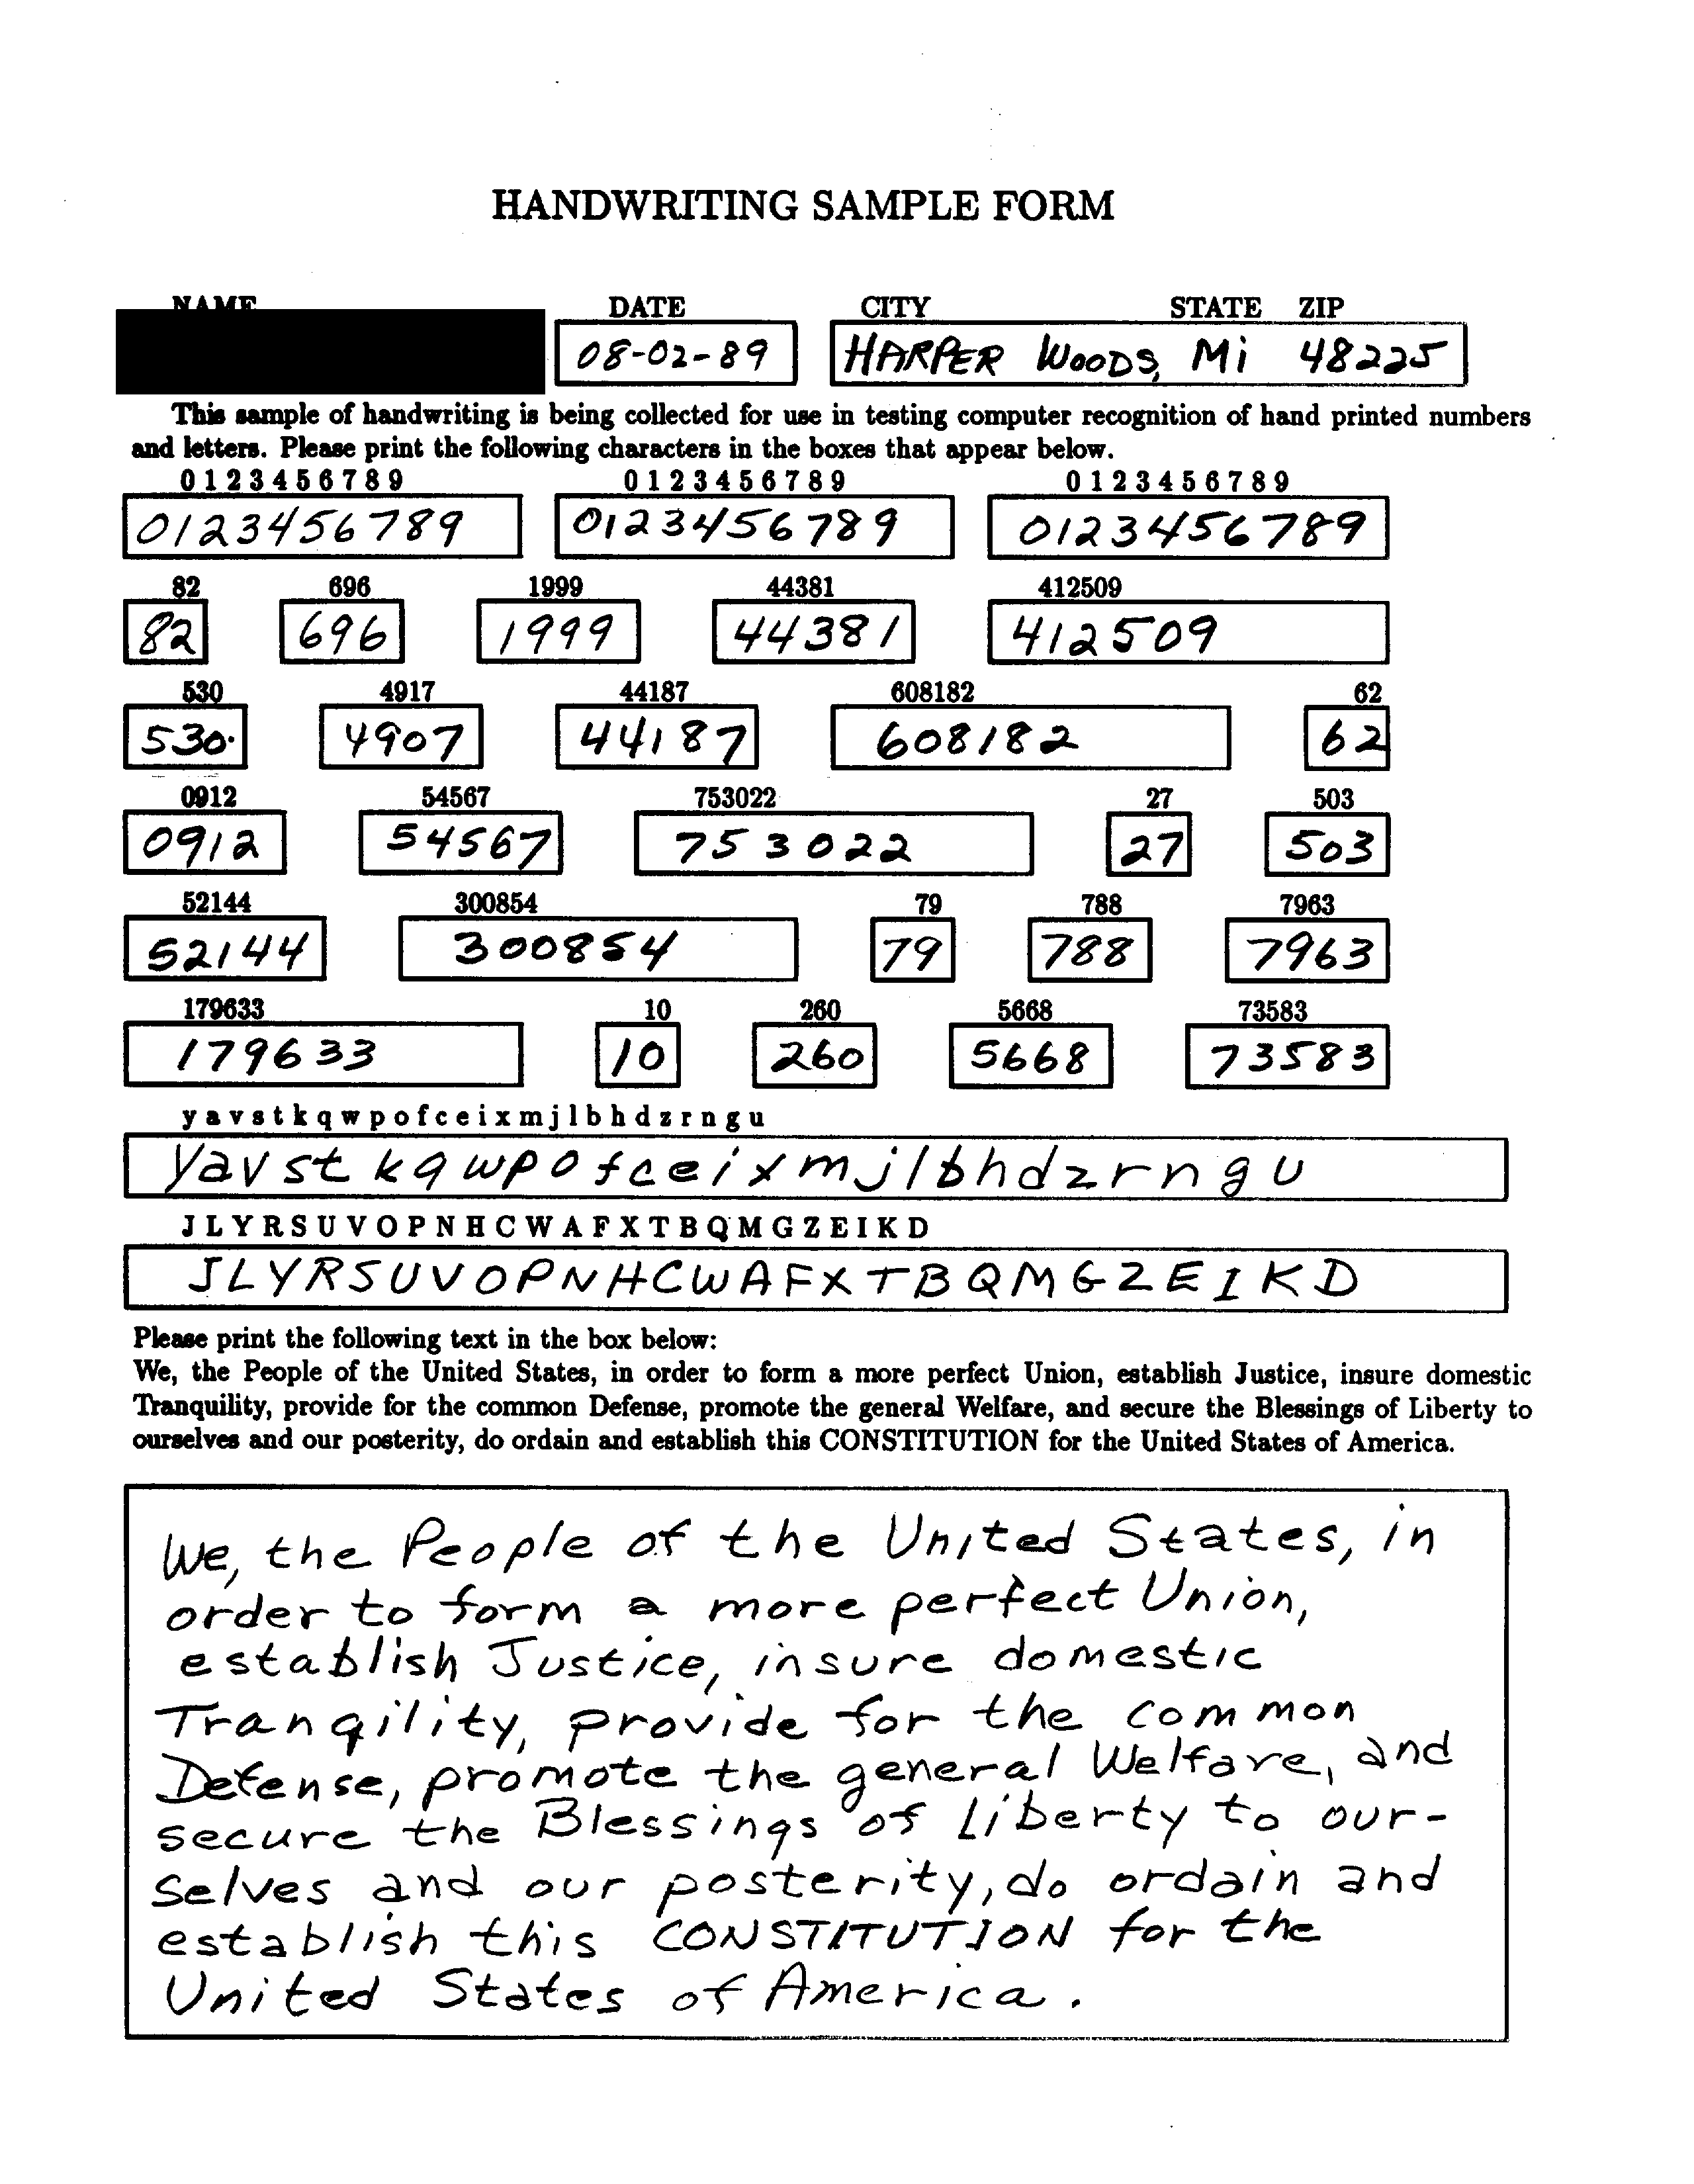 HANDWRITING SAMPLE FORM
NAME DATE CITY STATE ZIP
08-02-89 HARPER WOODS, Mi 48225
This sample of handwriting is being collected for use in testing computer recognition of hand printed numbers
and letters. Please print the following characters in the boxes that appear below.
0 1 2 3 4 5 6 7 8 9 0 1 2 3 4 5 6 7 8 9 0 1 2 3 4 5 6 7 8 9
0123456789 0123456789 0123456789
82 696 1999 44381 412509
82 696 1999 44381 412509
530 4917 44187 608182 62
530. 4907 44187 608182 62
0912 54567 753022 27 503
0912 54567 753022 27 503
52144 300854 79 788 7963
52144 300854 79 788 7963
179633 10 260 5668 73583
179633 10 260 5668 73583
y a v s t k q w p o f c e i x m j l b h d z r n g u
y a v s t k q w p o f c e i x m j l b h d z r n g u
J L Y R S U V O P N H C W A F X T B Q M G Z E I K D
J L Y R S U V O P N H C W A F X T B Q M G Z E I K D
Please print the following text in the box below:
We, the People of the United States, in order to form a more perfect Union, establish Justice, insure domestic
Tranquility, provide for the common Defense, promote the general Welfare, and secure the Blessings of Liberty to
ourselves and our posterity, do ordain and establish this CONSTITUTION for the United States of America.
We, the People of the United States, in
order to form a more perfect Union,
establish Justice, insure domestic
Tranqility, provide for the common
Defense, promote the general Welfare, and
secure the Blessings of Liberty to our-
selves and our posterity, do ordain and
establish this CONSTITUTION for the
United States of America.